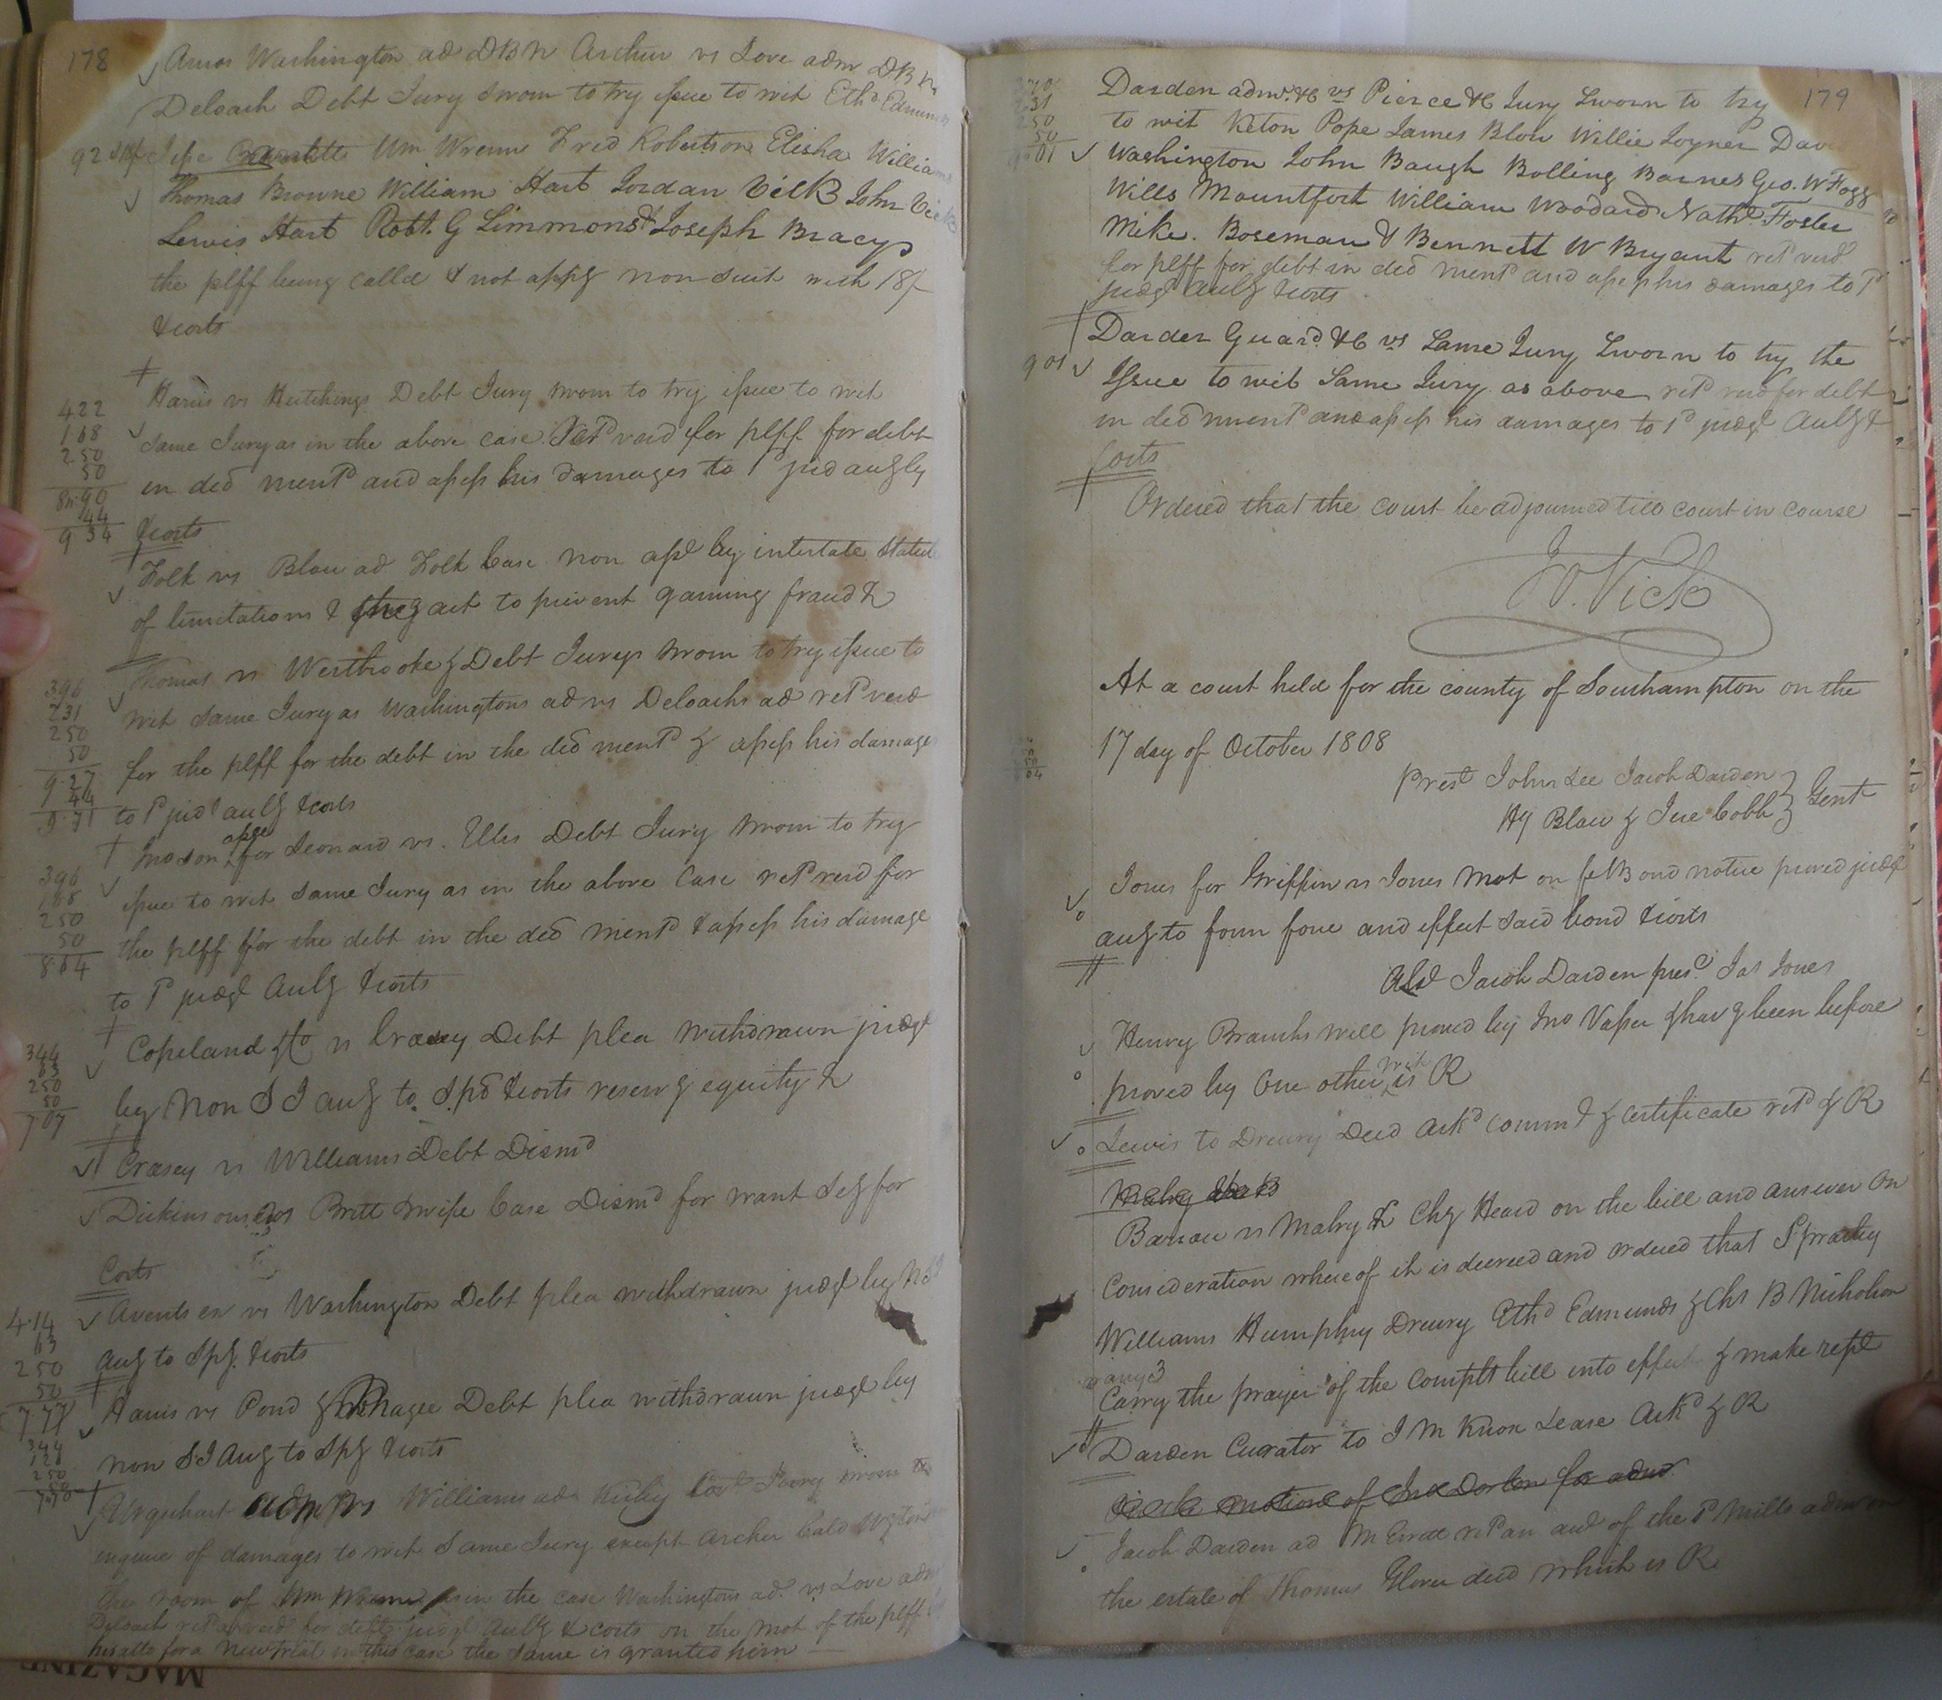 178
Amos Washington ad DBN Archer vs Love admr DBN
Deloach Debt Jury sworn to try issue to wit Ethd Edmunds
Wm Wrenn Fred Robertson Elisha Williams
Thomas Browne William Hart Jordan Vick John Vick
Lewis Hart Robt. G Simmons & Joseph Bracy
the plff being called & not appg non suit with 18/
& costs
92
Harris vs Hutchings Debt Jury sworn to try issue to wit
same Jury as in the above case Retd verd for plff for debt
in decd mentd and assess his damages to 1d jud augly
& costs
422
168
250
50
8.90
44
9 34
Folk vs Blow ad Folk Case non asst by intestate Statute
of limitations & act to prevent gaming fraud &
Thomas vs Westbrooke & Debt Jury sworn to try issue to
wit same Jury as Washingtons ad vs Deloachs ad retd verd
for the plff for the debt in the decd mentd & assess his damages
to 1d judt augly & costs
396
231
250
50
9.27
44
9.71
Jno Son assee for Leonard vs. Ellis Debt Jury sworn to try
issue to wit same Jury as in the above Case retd verd for
the plff for the debt in the decd mentd & assess his damage
to 1d judgt Augly & costs
396
168
250
50
8.64
Copeland & Co vs Crasey Debt plea withdrawn judgt
by Non S I augs to Spd & costs reservg equity &
344
63
250
50
7.07
Crasey vs Williams Debt Dismd
Dickinson vs Britt & wife Case Dismd for want Secy for
Costs
Avents ex vs Washington Debt plea withdrawn judgt by N
augs to Spy. & costs
4.14
63
250
50
7 77
Harris vs Pond & Magee Debt plea withdrawn judgt by
non S I Augs to Spy & costs
344
126
250
50
Urquhart admr vs Williams ad Kirby Jury sworn to
inquire of damages to wit Same Jury except Archer in
the room of Wm Wrenn as in the case Washingtons ad. vs Love adm
Deloach retd verd for deft judgt Augly & costs on the mot of the plff
his atto for a new trial in this case the same is granted him
179
Darden admr. &C vs Pierce &C Jury Sworn to try
to wit Keton Pope James Blow Willie Joyner
Washington John Baugh Bolling Barnes Geo. W Fogg
Wills Mountfort William Woodard Nathl Foster
Mike. Boseman & Bennett W Bryant retd verd
for plff for debt in decd mentd and assess his damages to 1d
judgt augly & costs
231
250
50
Darden Guard. &C vs Same Jury Sworn to try the
Issue to wit Same Jury as above retd verd for debt
in decd mentd and assess his damages to 1d judgt Augly &
Costs
901
Ordered that the court be adjourned till court in course
Vick
At a court held for the county of Southampton on the
17 day of October 1808
Prest John Lee Jacob Darden
Hy Blow & Jere Cobb } Gent
Jones for Griffin vs Jones Mot on Bond notice proved judgt
augs to form force and effect said bond & costs
Jacob Darden prest Jas Jones
Henry Branchs will proved by Jno & havg been before
proved by one other wit is R
Lewis to Drewry Deed Ackd commn & certificate retd & R
Barrow vs Mabry & Chy Heard on the bill and answer on
Consideration whereof it is decreed and ordered that
Williams Humphry Drewry Ethd Edmunds & Chs B Nicholson
or any 3
Carry the prayer of the Complts bill into effect & make rept
Darden Curator to I M Knox Lease Ackd & R
motion of Dorton for admr
Jacob Darden ad retd an aud of the Mills admr on
the estate of Thomas Glover decd which is R
MAGAZINE